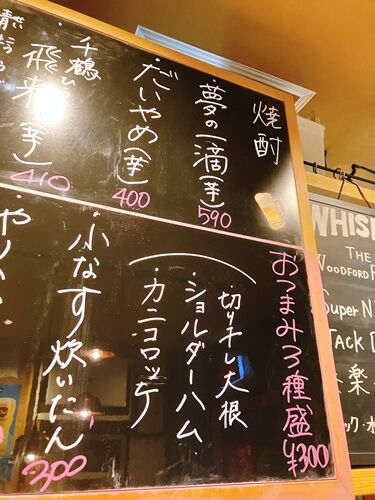 焼酎
夢の一滴(芋)
590
だいやめ(芋)
400
千鶴
飛来(芋)
410
おつまみ3種盛
¥300
切り干し大根
・ショルダーハム
・カニコロッケ
・小なす炊いたん
300
WHIS
THE
WOODFORD
Super N
TACK
楽